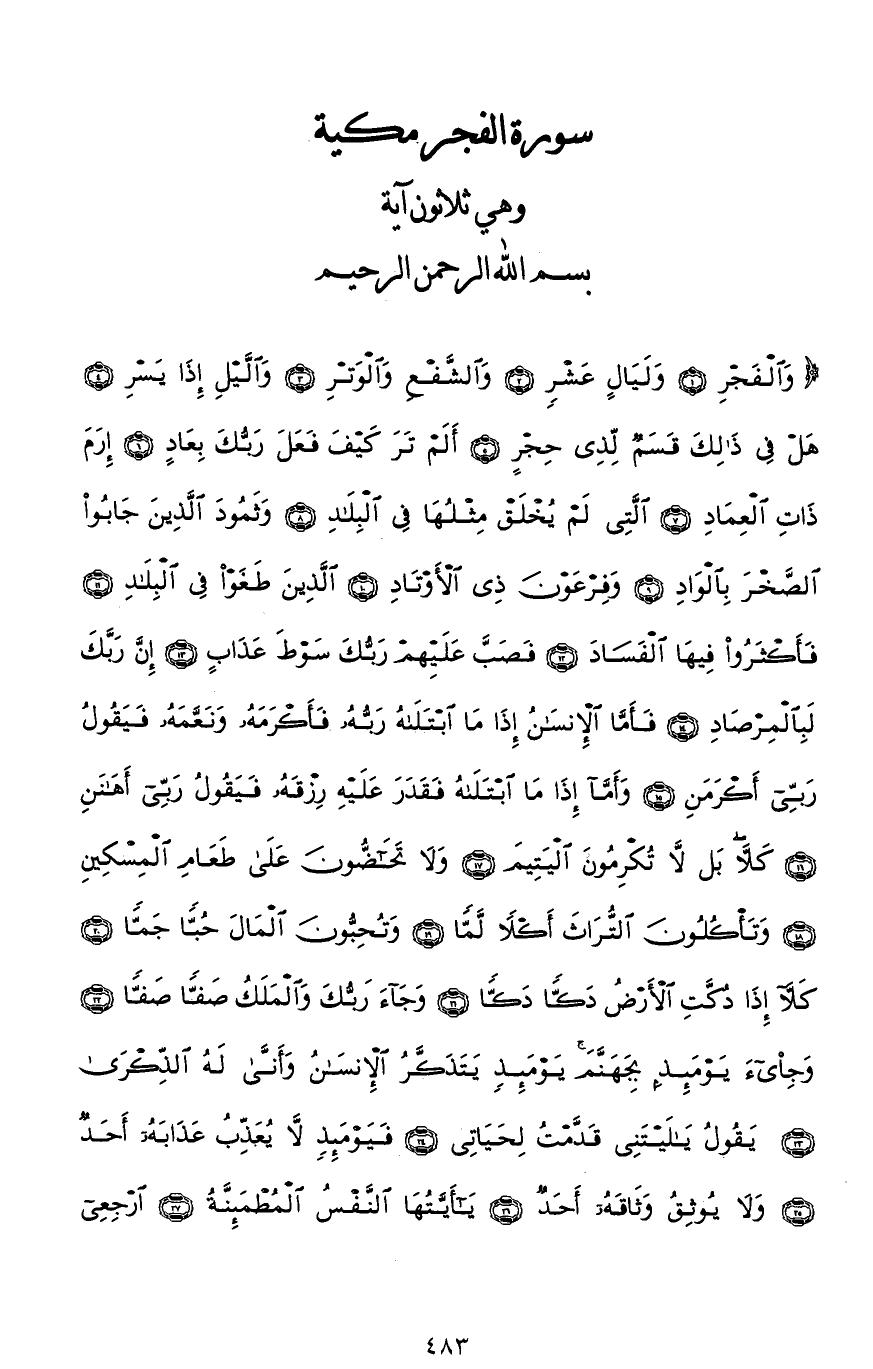 سورة الفجر مكية
وهي ثلاثون آية
بسم الله الرحمن الرحيم
﴿ وَٱلْفَجْرِ ١ وَلَيَالٍ عَشْرٍ ٢ وَٱلشَّفْعِ وَٱلْوَتْرِ ٣ وَٱلَّيْلِ إِذَا يَسْرِ ٤
هَلْ فِى ذَٰلِكَ قَسَمٌ لِّذِى حِجْرٍ ٥ أَلَمْ تَرَ كَيْفَ فَعَلَ رَبُّكَ بِعَادٍ ٦ إِرَمَ
ذَاتِ ٱلْعِمَادِ ٧ ٱلَّتِى لَمْ يُخْلَقْ مِثْلُهَا فِى ٱلْبِلَـٰدِ ٨ وَثَمُودَ ٱلَّذِينَ جَابُوا۟
ٱلصَّخْرَ بِٱلْوَادِ ٩ وَفِرْعَوْنَ ذِى ٱلْأَوْتَادِ ١٠ ٱلَّذِينَ طَغَوْا۟ فِى ٱلْبِلَـٰدِ ١١
فَأَكْثَرُوا۟ فِيهَا ٱلْفَسَادَ ١٢ فَصَبَّ عَلَيْهِمْ رَبُّكَ سَوْطَ عَذَابٍ ١٣ إِنَّ رَبَّكَ
لَبِٱلْمِرْصَادِ ١٤ فَأَمَّا ٱلْإِنسَـٰنُ إِذَا مَا ٱبْتَلَىٰهُ رَبُّهُۥ فَأَكْرَمَهُۥ وَنَعَّمَهُۥ فَيَقُولُ
رَبِّىٓ أَكْرَمَنِ ١٥ وَأَمَّآ إِذَا مَا ٱبْتَلَىٰهُ فَقَدَرَ عَلَيْهِ رِزْقَهُۥ فَيَقُولُ رَبِّىٓ أَهَـٰنَنِ
١٦ كَلَّاۖ بَل لَّا تُكْرِمُونَ ٱلْيَتِيمَ ١٧ وَلَا تَحَـٰٓضُّونَ عَلَىٰ طَعَامِ ٱلْمِسْكِينِ
١٨ وَتَأْكُلُونَ ٱلتُّرَاثَ أَكْلًا لَّمًّا ١٩ وَتُحِبُّونَ ٱلْمَالَ حُبًّا جَمًّا ٢٠
كَلَّآ إِذَا دُكَّتِ ٱلْأَرْضُ دَكًّا دَكًّا ٢١ وَجَآءَ رَبُّكَ وَٱلْمَلَكُ صَفًّا صَفًّا ٢٢
وَجِا۟ىٓءَ يَوْمَئِذٍۭ بِجَهَنَّمَۚ يَوْمَئِذٍ يَتَذَكَّرُ ٱلْإِنسَـٰنُ وَأَنَّىٰ لَهُ ٱلذِّكْرَىٰ
٢٣ يَقُولُ يَـٰلَيْتَنِى قَدَّمْتُ لِحَيَاتِى ٢٤ فَيَوْمَئِذٍ لَّا يُعَذِّبُ عَذَابَهُۥٓ أَحَدٌ
٢٥ وَلَا يُوثِقُ وَثَاقَهُۥٓ أَحَدٌ ٢٦ يَـٰٓأَيَّتُهَا ٱلنَّفْسُ ٱلْمُطْمَئِنَّةُ ٢٧ ٱرْجِعِىٓ
٤٨٣